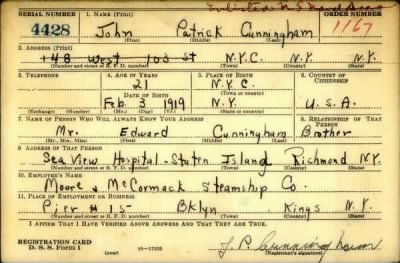 Enlisted N S Naval
SERIAL NUMBER 1. NAME (Print) ORDER NUMBER
4428 John Patrick Cunningham 1167
(First) (Middle) (Last)
2. ADDRESS (Print)
148 West 103 St N.Y.C. N.Y. N.Y.
(Number and street or R. F. D. number) (Town) (County) (State)
3. TELEPHONE 4. AGE IN YEARS 5. PLACE OF BIRTH 6. COUNTRY OF CITIZENSHIP
21 N.Y.C.
DATE OF BIRTH (Town or county)
Feb 3 1919 N.Y. U.S.A.
(Exchange) (Number) (Mo.) (Day) (Yr.) (State or country)
7. NAME OF PERSON WHO WILL ALWAYS KNOW YOUR ADDRESS 8. RELATIONSHIP OF THAT PERSON
Mr. Edward Cunningham Brother
(Mr., Mrs., Miss) (First) (Middle) (Last)
9. ADDRESS OF THAT PERSON
Sea View Hospital - Staten Island Richmond N.Y.
(Number and street or R. F. D. number) (Town) (County) (State)
10. EMPLOYER'S NAME
Moore & McCormack Steamship Co.
11. PLACE OF EMPLOYMENT OR BUSINESS
Pier #15 Bklyn Kings N.Y.
(Number and street or R. F. D. number) (Town) (County) (State)
I AFFIRM THAT I HAVE VERIFIED ABOVE ANSWERS AND THAT THEY ARE TRUE.
REGISTRATION CARD
D. S. S. Form 1 (over) 16-17105 J. P. Cunningham
(Registrant's signature)